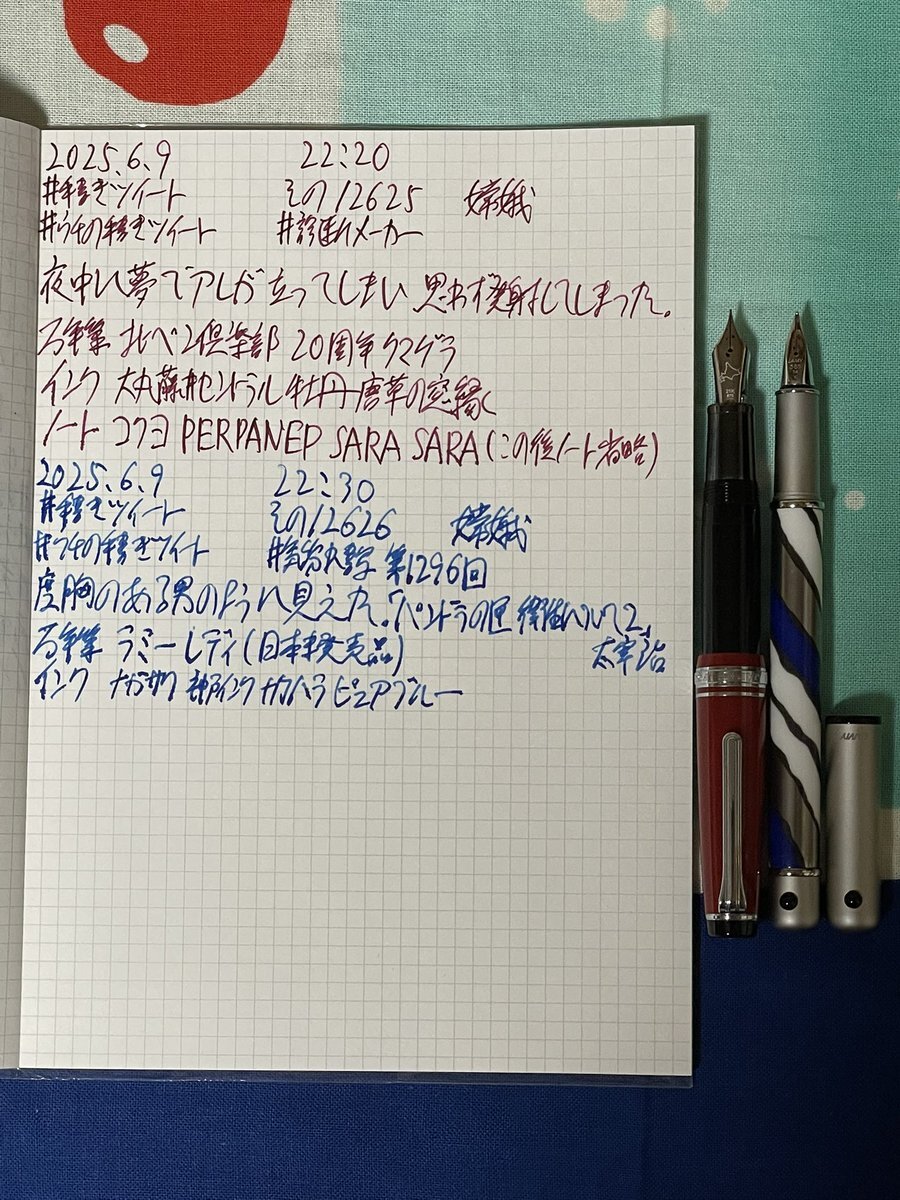 2025.6.9 22:20
#手書きツイート その12625 嫦娥
#うちの手書きツイート #診断メーカー
夜中に夢でアレが立ってしまい 思わず発射してしまった。
万年筆 北ペン倶楽部 20周年 クマゲラ
インク 大丸藤井セントラル 牡丹唐草の窓縁
ノート コクヨ PERPANEP SARA SARA (この後ノート省略)
2025.6.9 22:30
#手書きツイート その12626 嫦娥
#うちの手書きツイート 第1296回
度胸のある男のように見えた。「パンドラの匣
万年筆 ラミー レディ (日本未発売品) 太宰治
インク ナガサワ 神戸インク ピュアブルー
LAMY